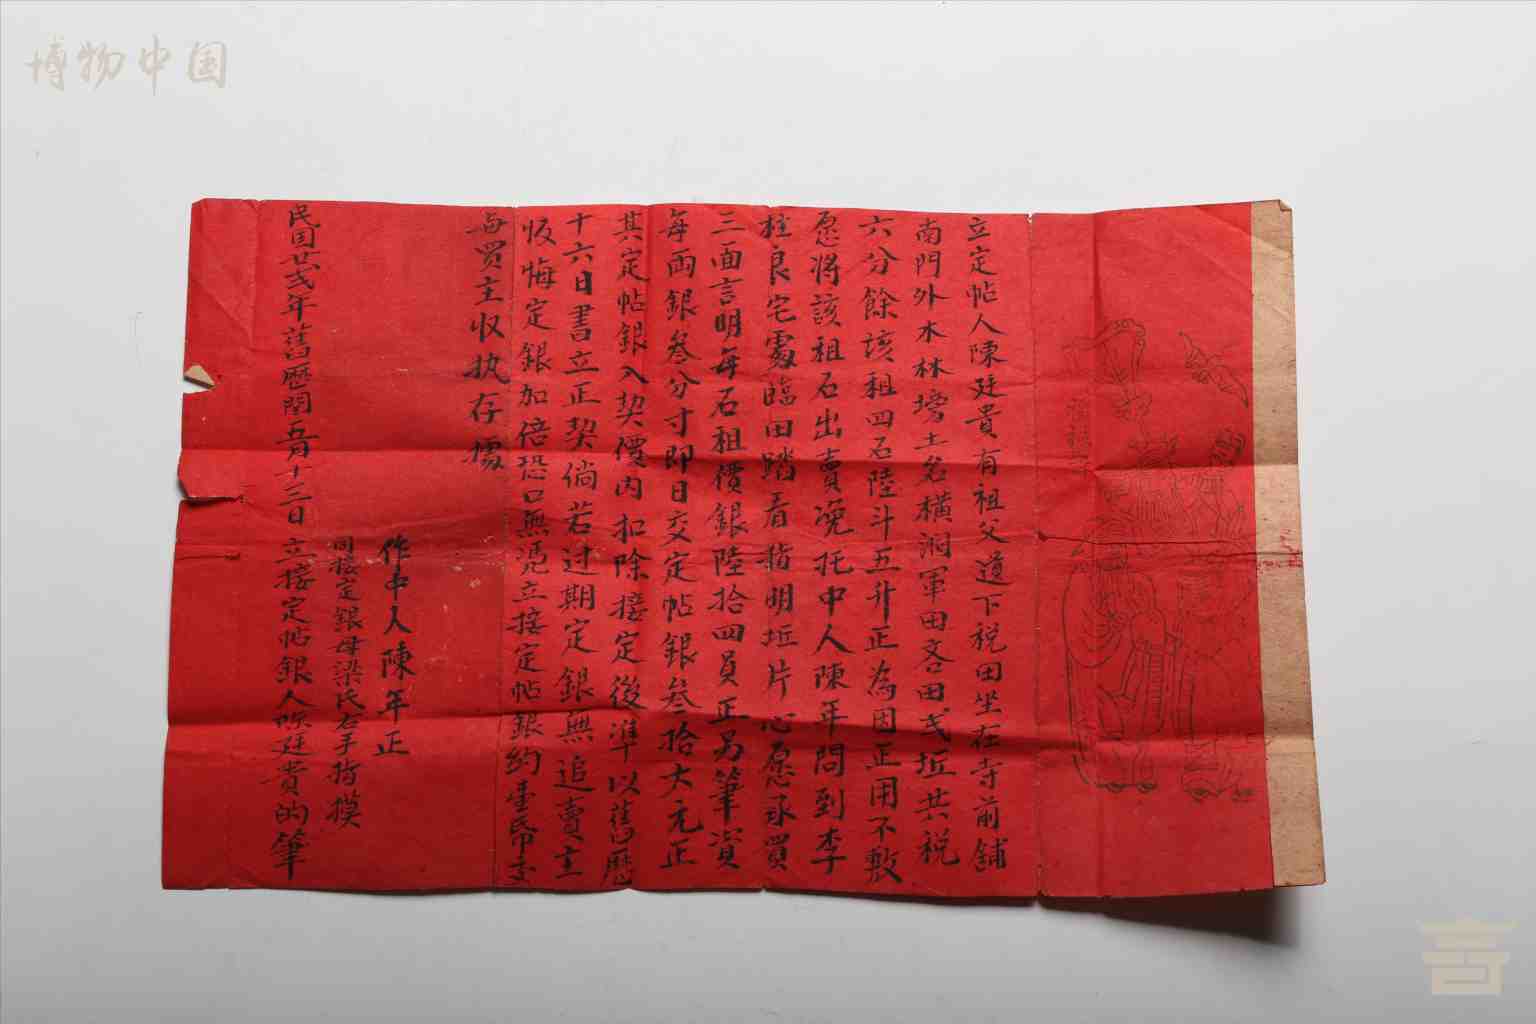 博物中国
立定帖人陳廷貴有祖父遺下税田坐在寺前鋪
南門外木林塝土名橫洞軍田吝田弍坵共税
六分餘該租四石陸斗五升正為因正用不敷
愿將該租石出賣浼托中人陳年問到李
桂良宅處臨田踏看指明坵片心愿承買
三面言明每石租價銀陸拾四員正另筆資
每両銀叁分寸即日交定帖銀叁拾大元正
其定帖銀入契價内扣除接定後準以舊歷
十六日書立正契倘若过期定銀無追賣主
恢悔定銀加倍恐口無憑立接定帖銀約壹帋交
与買主收执存據
作中人陳年正
同接定銀母梁氏右手指摸
民囯廿弍年舊歷閏五月十三日立接定帖銀人陳廷貴的筆